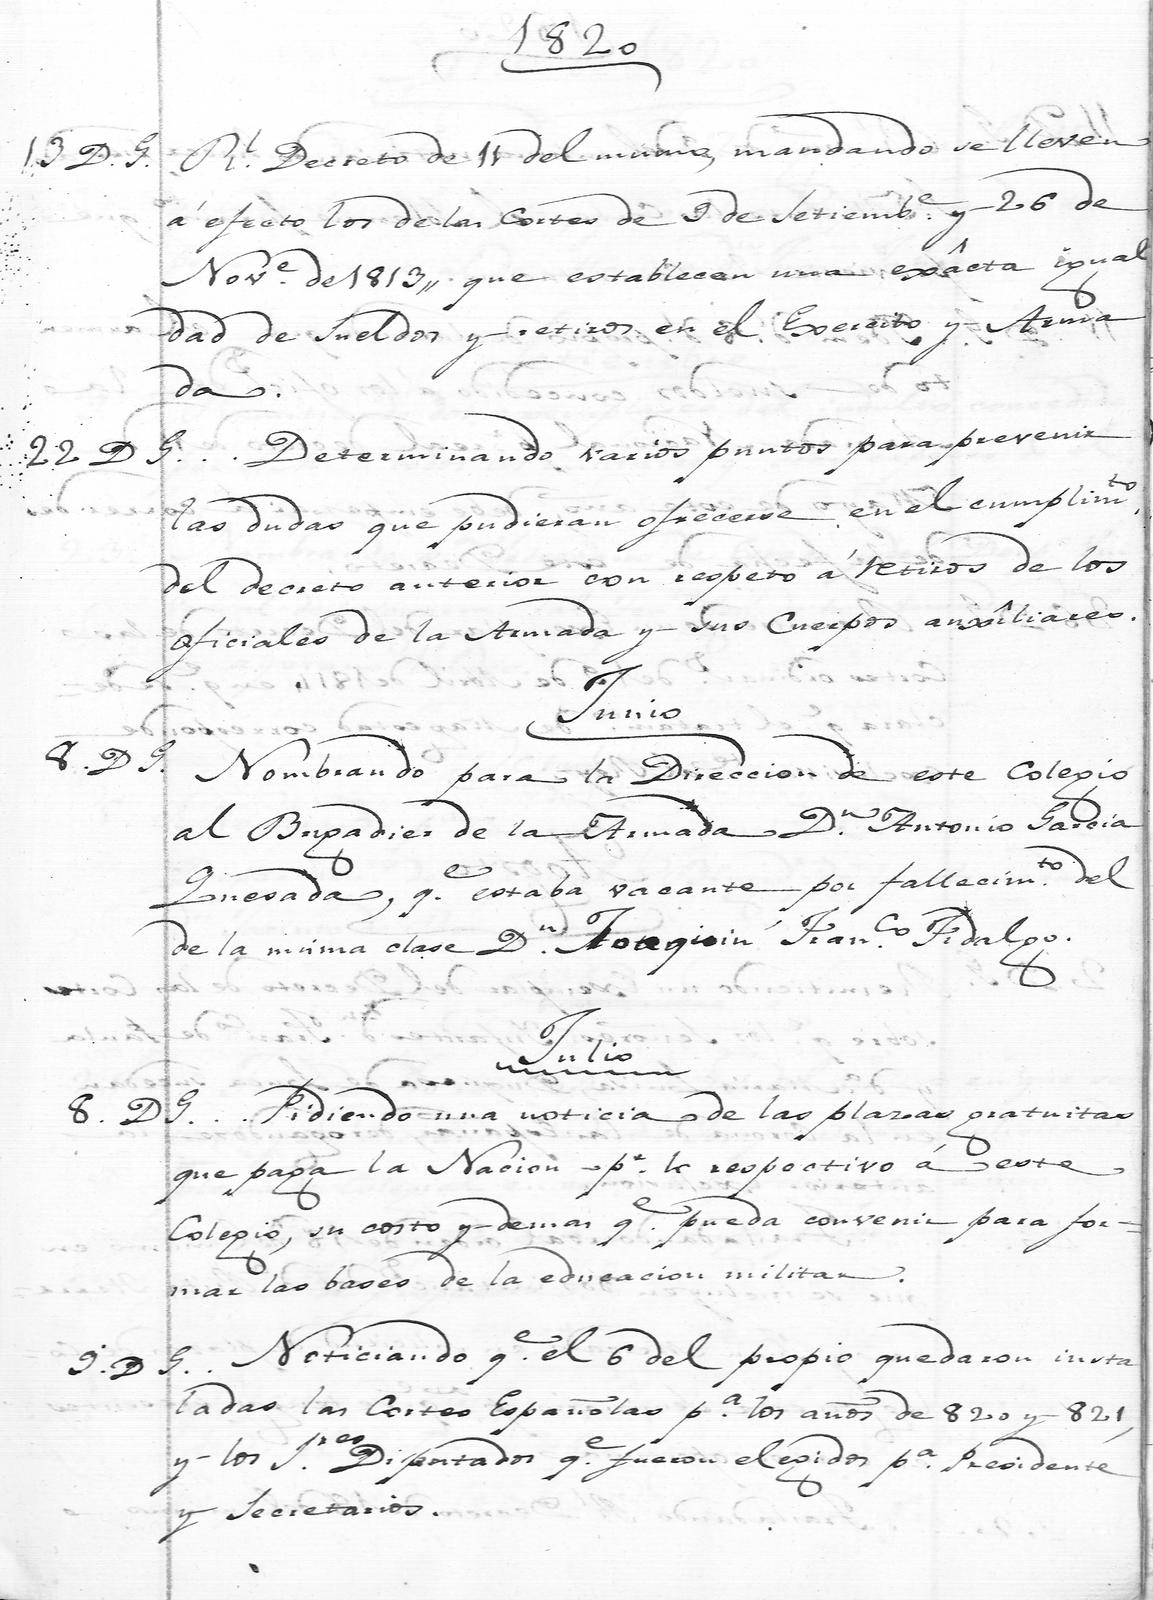 1820
13 D. G. Rl. Decreto de 11 del mismo, mandando se lleven
á efecto los de las Cortes de 9 de Setiembe. y 26 de
Nove. de 1813,, que establecen una exâcta igual
dad de sueldos y retiros en el Exercito y Arma
da.
22 D G... Determinando varios puntos para prevenir
las dudas que pudieran ofrecerse en el cumplimto.
del decreto anterior con respeto á retiros de los
oficiales de la Armada y sus Cuerpos auxîliares.
Junio
8. D G. Nombrando para la Direccion de este Colegio
al Brigadier de la Armada Dn. Antonio Garcia
Quesada, qe. estaba vacante por fallecimto. del
de la misma clase Dn. Joaquin Franco. Fidalgo.
Julio
8. D G... Pidiendo una noticia de las plazas gratuitas
que paga la Nacion pr. lo respectivo á este
Colegio, su costo y demas qe. pueda convenir para for=
mar las bases de la educacion militar.
9. D G.. Noticiando qe. el 6 del propio quedaron insta
ladas las Cortes Españolas pa. los años de 820 y 821,
y los Sres. Diputados qe. fueron elegidos pa. Presidente
y Secretarios.